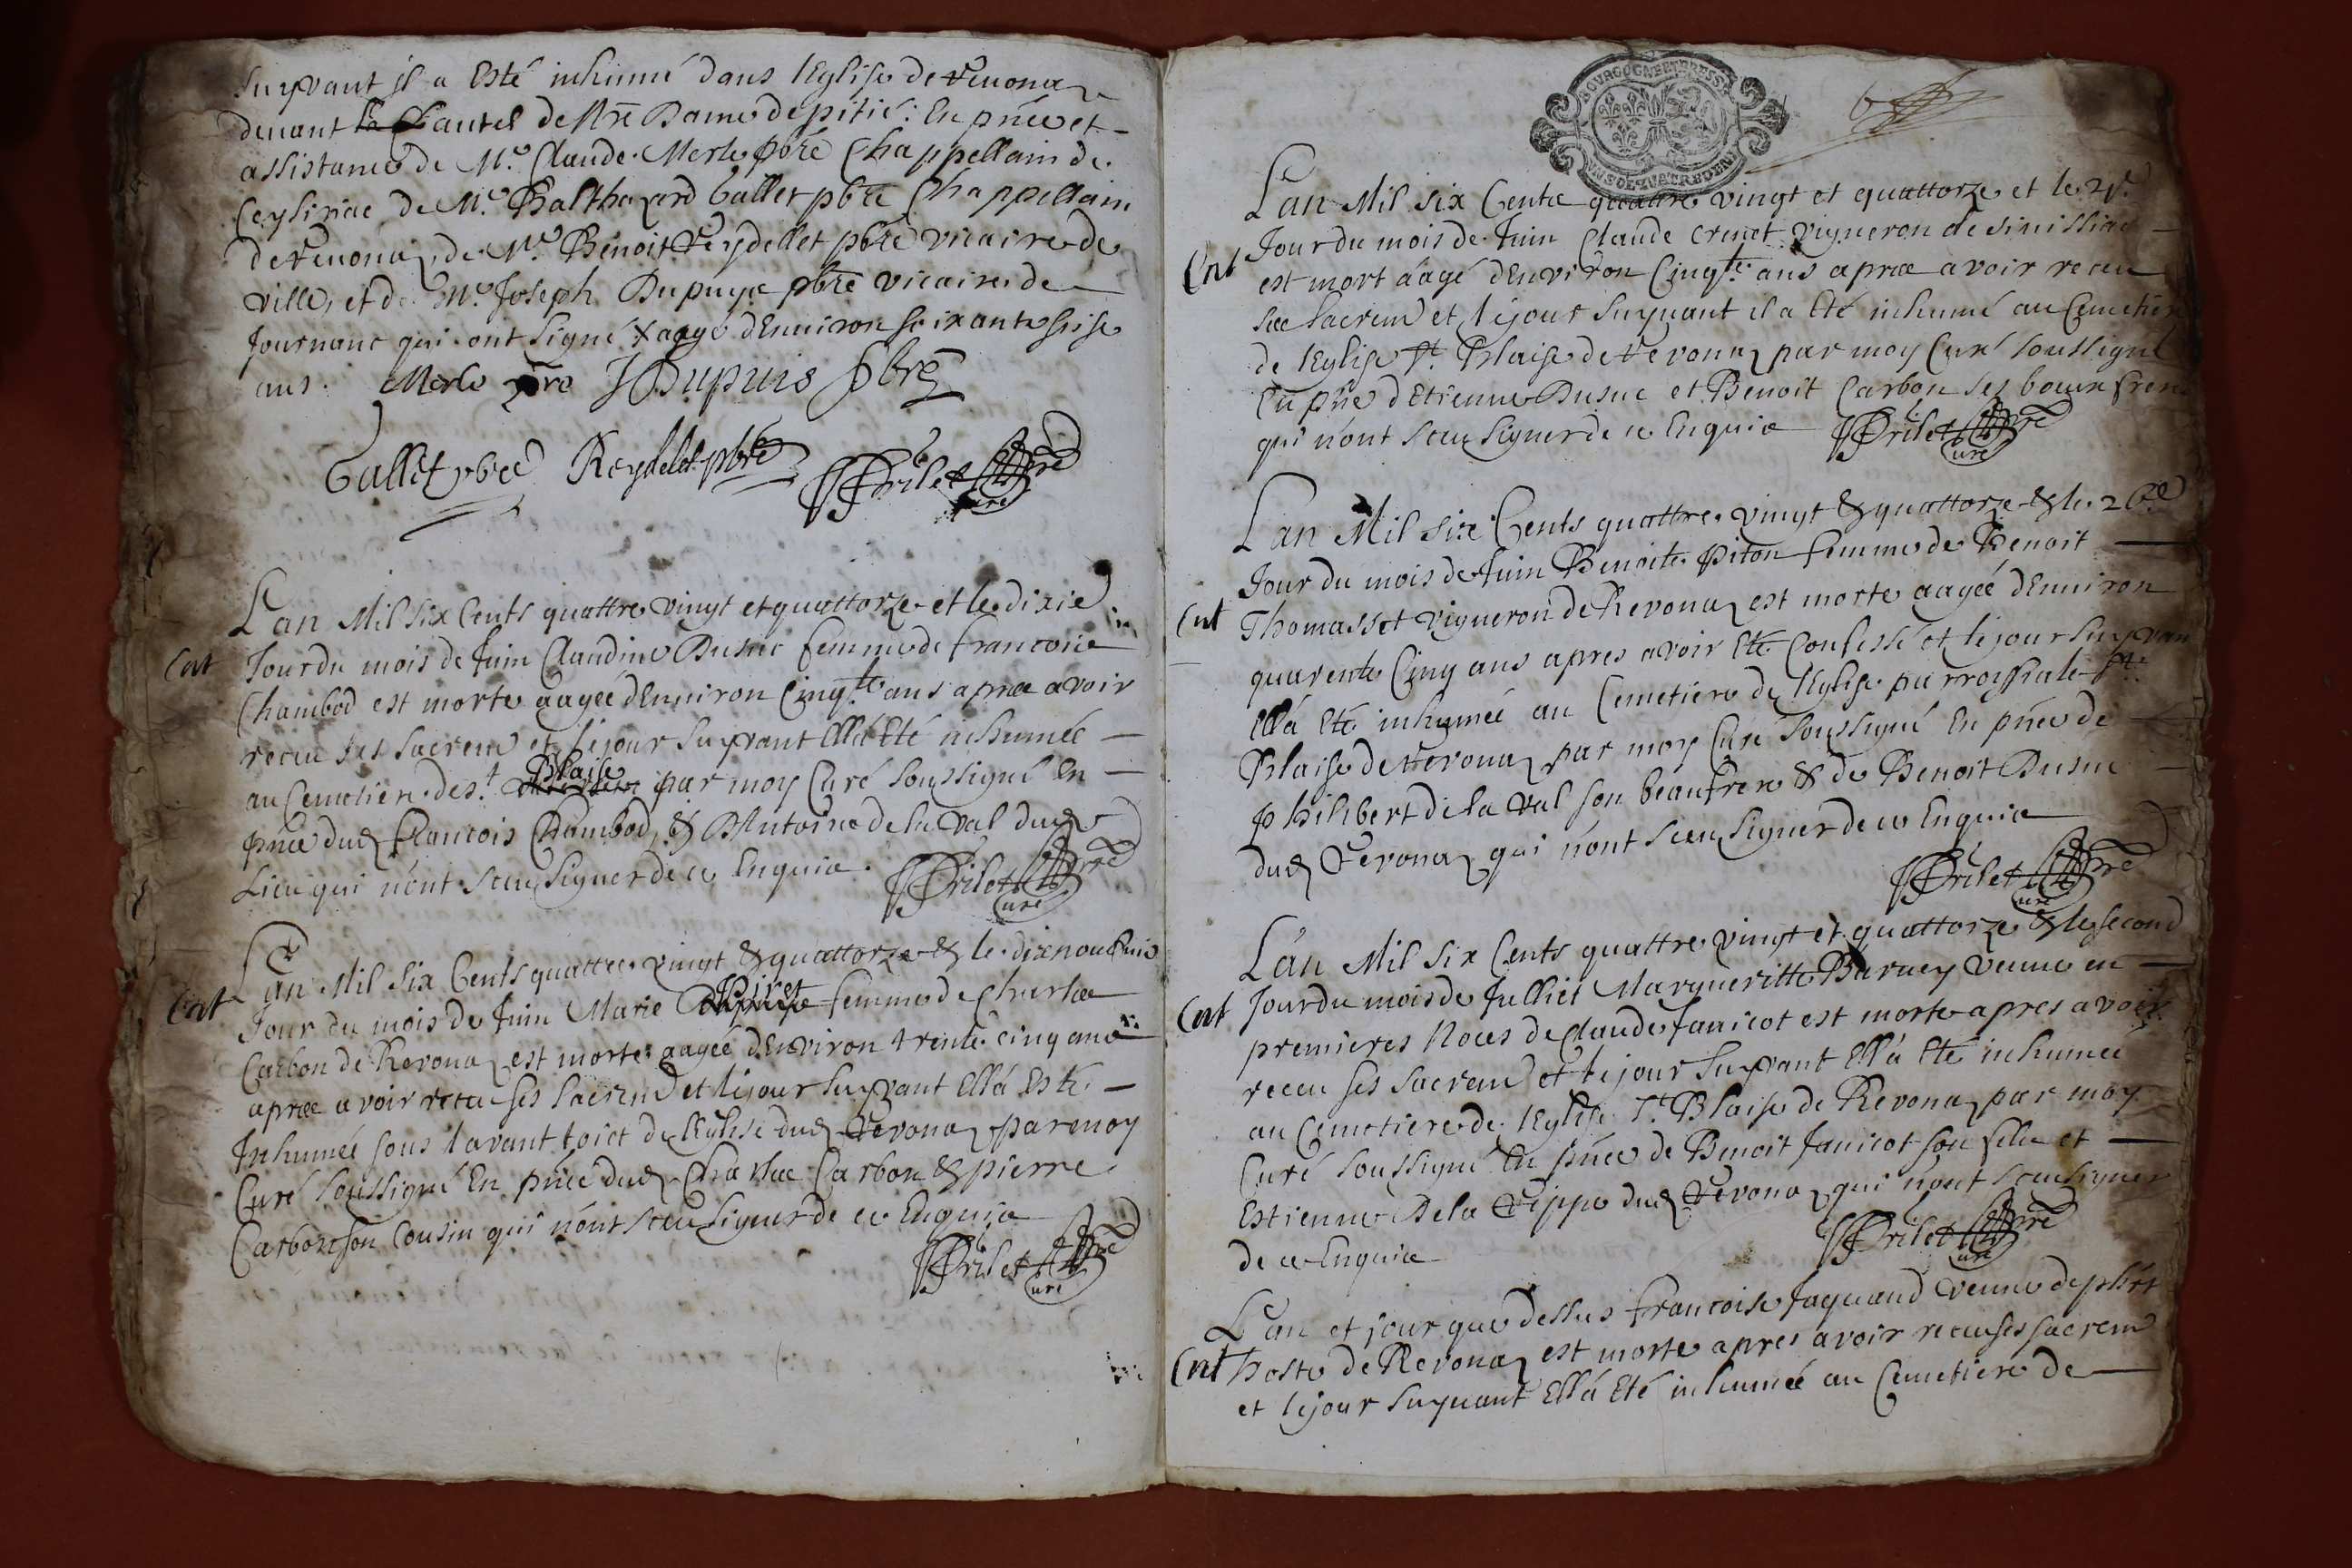 Suyvant il a Esté inhumé dans l'Eglise de Revona
devant l'autel de Nre Dame de pitié: En pnce et
assistance de Mre Claude Merle pbre Chappellain de
Ceysiriac de Mre Balthazard Gallet pbre Chappellain
de Revona, de Mre Benoit Reydellet pbre vicaire de
ville, et de Mre Joseph Dupuys pbre vicaire de
Journanc qui ont signé X aagé d'Environ soixante
ans. Merle pbre JDupuis pbre
Gallet pbre Reydelet pbre Brilet pbre
Curé
L'an Mil six Cents quattre vingt et quattorze et le dixie
Cnt Jour du mois de Juin Claudine Dusuc femme de francois
Chambod est morte aagée d'Environ Cinqte ans apres avoir
receu ses sacrem et le jour suyvant Ell'a Eté inhumée
au Cemetiere de St Blaise par moy Curé soussigné En
pnce dud francois Chambod, & Antoine de la Val dud
Lieu qui n'ont sceu signer de ce Enquis. Brilet pbre
Curé
L'an Mil six Cents quattre vingt & quattorze & le dixneufvie
Cnt Jour du mois de Juin Marie femme de Charles
Carbon de Revona est morte aagée d'Environ trente cinq ans
apres avoir receu ses sacrem et le jour suyvant Ell'a Esté
Inhumée sous l'avant toict de l'Eglise dud Revona par moy
Curé soussigné En pnce dud Charles Carbon & pierre
Carbon son Cousin qui n'ont sceu signer de ce Enquis
Brilet pbre
Curé
BOURGOGNE ET BRESSE
L'an Mil six Cents quattre vingt et quattorze et le
Jour du mois de Juin Claude vigneron de
Cnt est mort aagé d'Environ Cinqte ans apres avoir receu
ses sacrem et le jour suyvant il a Eté inhumé au Cemetiere
de l'Eglise St Blaise de Revona par moy Curé soussigné
En pnce d'Etienne Dusuc et Benoit Carbon ses beaux freres
qui n'ont sceu signer de ce Enquis Brilet pbre
Curé
L'an Mil six Cents quattre vingt & quattorze & le 26e
Jour du mois de Juin Benoite Piton femme de Benoit
Cnt Thomasset vigneron de Revona est morte aagée d'Environ
quarente Cinq ans apres avoir Eté Confessé et le jour suyvant
Ell'a Eté inhumée au Cemetiere de l'Eglise parroissiale St
Blaise de Revona par moy Curé soussigné En pnce de
Philibert de la Val son beaufrere & de Benoit Dusuc
dud Revona qui n'ont sceu signer de ce Enquis
Brilet pbre
Curé
L'an Mil six Cents quattre vingt et quattorze & le second
Cnt Jour du mois de Julliet Margueritte Burney veuve en
premieres Noces de Claude Janicot est morte apres avoir
receu ses sacrem et le jour suyvant Ell'a Eté inhumée
au Cemetiere de l'Eglise St Blaise de Revona par moy
Curé soussigné En pnce de Benoit Janicot son fils et
Estienne De la dud Revona qui n'ont sceu signer
de ce Enquis Brilet pbre
Curé
L'an et jour que dessus francoise Jaquand veuve de phbt
Cnt hoste de Revona est morte apres avoir receu ses sacrem
et le jour suyvant Ell'a Eté inhumée au Cemetiere de